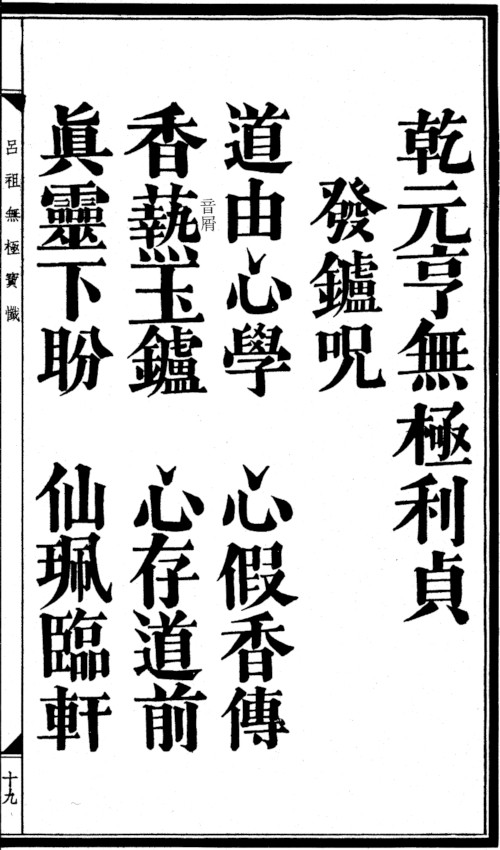 乾元亨無極利貞
發鑪呪
道由心學　心假香傳
香爇玉鑪　心存道前
音屑
眞靈下盼　仙珮臨軒
呂祖無極寶懺
十九